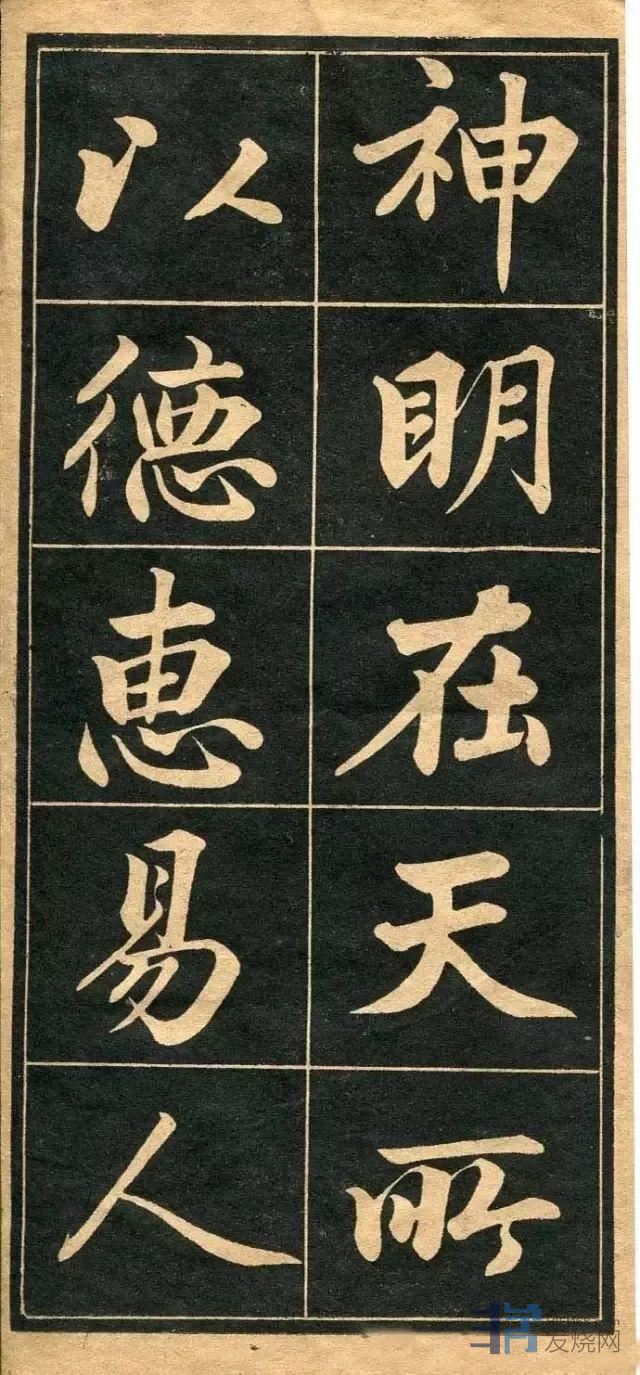 神明在天所
以德惠易人
发烧网